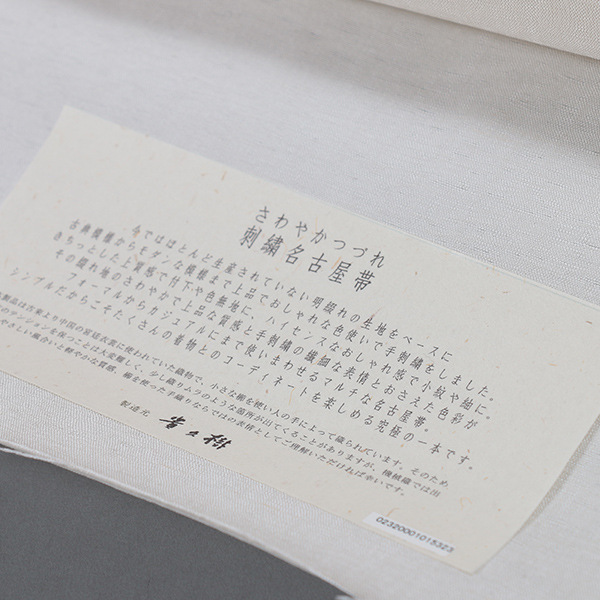 さわやかつづれ
刺繍名古屋帯
今ではほとんど生産されていない明綴れの生地をベースに
古典模様からモダンな模様まで上品でおしゃれな色使いで手刺繍をしました。
きちっとした上質感で付下や色無地に、ハイセンスなおしゃれ感で小紋や紬に。
その綴れ地のさわやかで上品な質感と手刺繍の繊細な表情とおさえた色彩が
フォーマルからカジュアルにまで使いまわせるマルチな名古屋帯。
シンプルだからこそたくさんの着物とのコーディネートを楽しめる究極の一本です。
製品は古来より中国の宮廷衣裳に使われていた織物で、小さな杼を使い人の手によって織られています。そのため
のテンションを保つことは大変難しく、少し織りムラのような箇所が出てくることがありますが、機械織では出
やさしい風合いと軽やかな質感、杼を使った手織りならではの表情としてご理解いただければ幸いです。
製造元
02320001015323